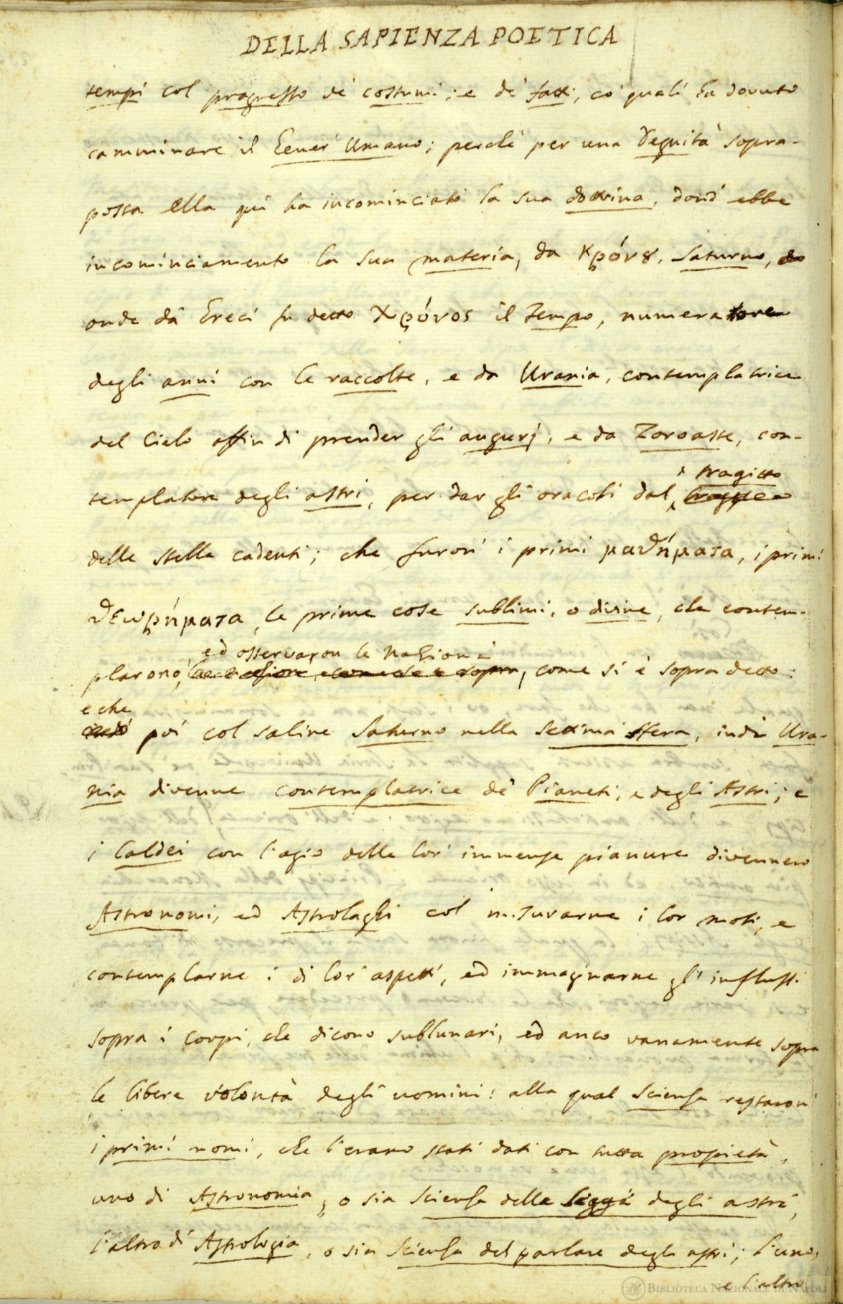 DELLA SAPIENZA POETICA
tempi col progresso de' costumi, e de' fatti, co' quali ha dovuto
camminare il Gener' Umano; perchè per una Degnità sopra-
posta ella qui ha incominciato la sua dottrina, dond' ebbe
incominciamento la sua materia, da Κρόνȣ, Saturno,
onde da' Greci fu detto Χρόνος il Tempo, numeratore
degli anni con le raccolte, e da Urania, contemplatrice
del Cielo affin di prender gli augurj, e da Zoroaste, con-
tragitto
templatore degli astri, per dar gli oracoli dal
delle stelle cadenti; che furon' i primi μαθήματα, i primi
θεωρήματα, le prime cose sublimi, o divine, che contem-
ed osservaron le nazioni
plarono, come si è sopra detto:
e che
poi col salire Saturno nella settima sfera, indi Ura-
nia divenne contemplatrice de' Pianeti, e degli Astri; e
i Caldei con l'agio delle lor' immense pianure divennero
Astronomi, ed Astrolaghi col misurarne i lor moti, e
contemplarne i di lor' aspetti, ed immaginarne gl' influssi
sopra i corpi, che dicono sublunari, ed anco vanamente sopra
le libere volontà degli uomini: alla qual Scienza restaron'
i primi nomi, che l'erano stati dati con tutta propietà,
uno di Astronomia, o sia scienza della legge degli astri,
l'altro di Astrologia, o sia scienza del parlare degli astri; l'uno,
e l'altro
BIBLIOTECA NAZIONALE DI NAPOLI